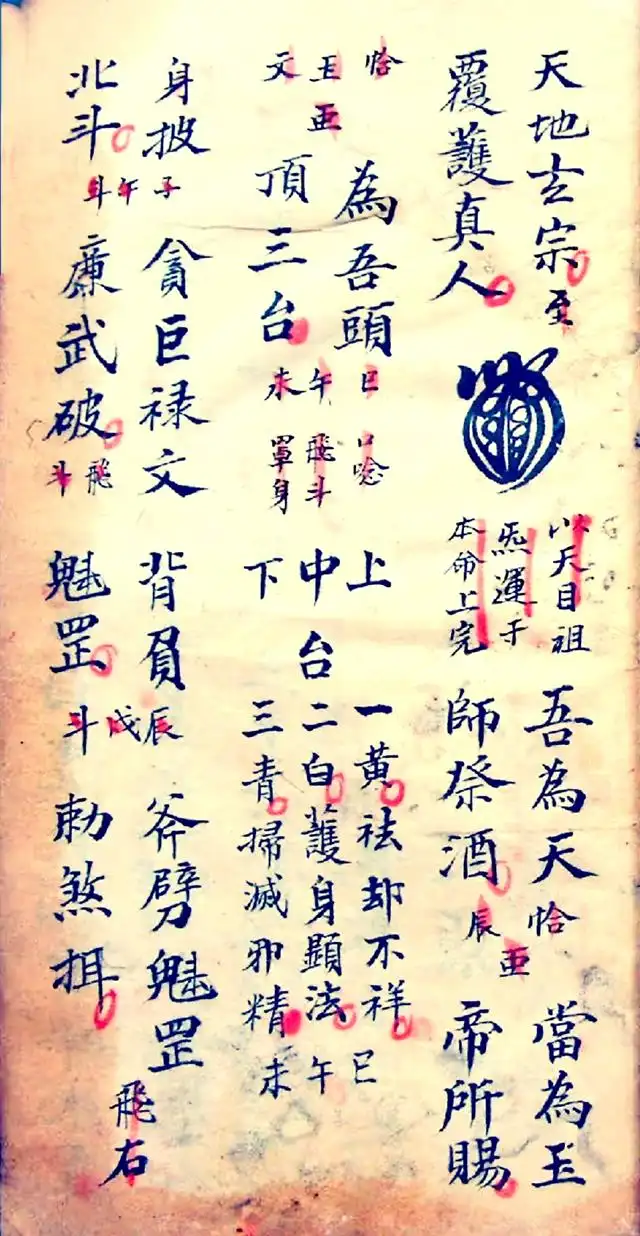 天地玄宗
至
覆護真人
以天目祖
炁運于
本命上完
吾為天
師祭酒
恰
亜
辰
當為玉
帝所賜
恰
玉亜
文
為吾頭
頂三台
巳
午
未
口唸
飛斗
罩身
上
中台
下
一黃祛却不祥
二白護身顯法
三青掃滅邪精
巳
午
未
身披
北斗
子
午
斗
貪巨禄文
廉武破
飛
斗
背負
魁罡
辰
戌
斗
斧劈魁罡
勅煞挕
飛右